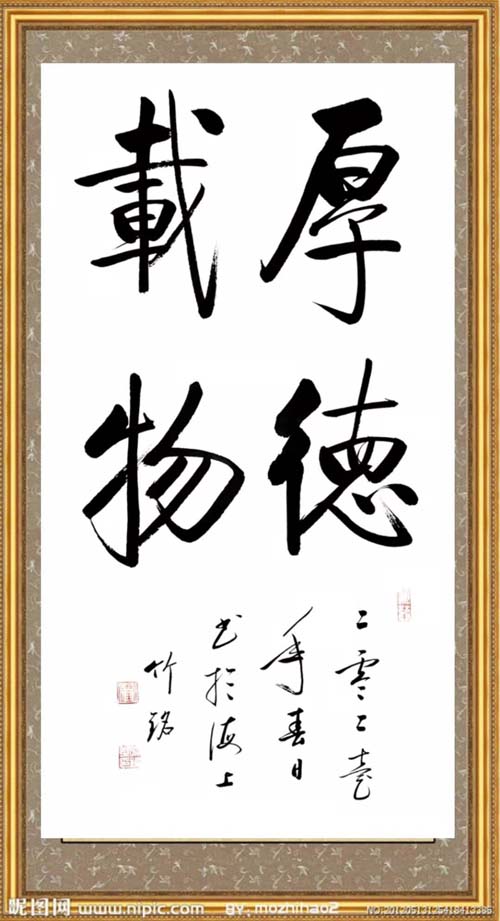 厚德
載物
二零二壹
年春日
书於海上
竹銘
昵图网 www.nipic.com by: mozhihao2